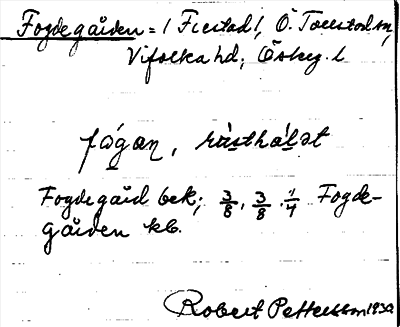 Fogdegården = 1 Fiestad 1, Ö. Tollstad sn,
Vifolka hd, Östeg. l
fó̱gan, rùsthá̱lət
Fogdegård bek; 3/8, 3/8, 1/4 Fogde-
gården kb.
Robert Pettersson 1930